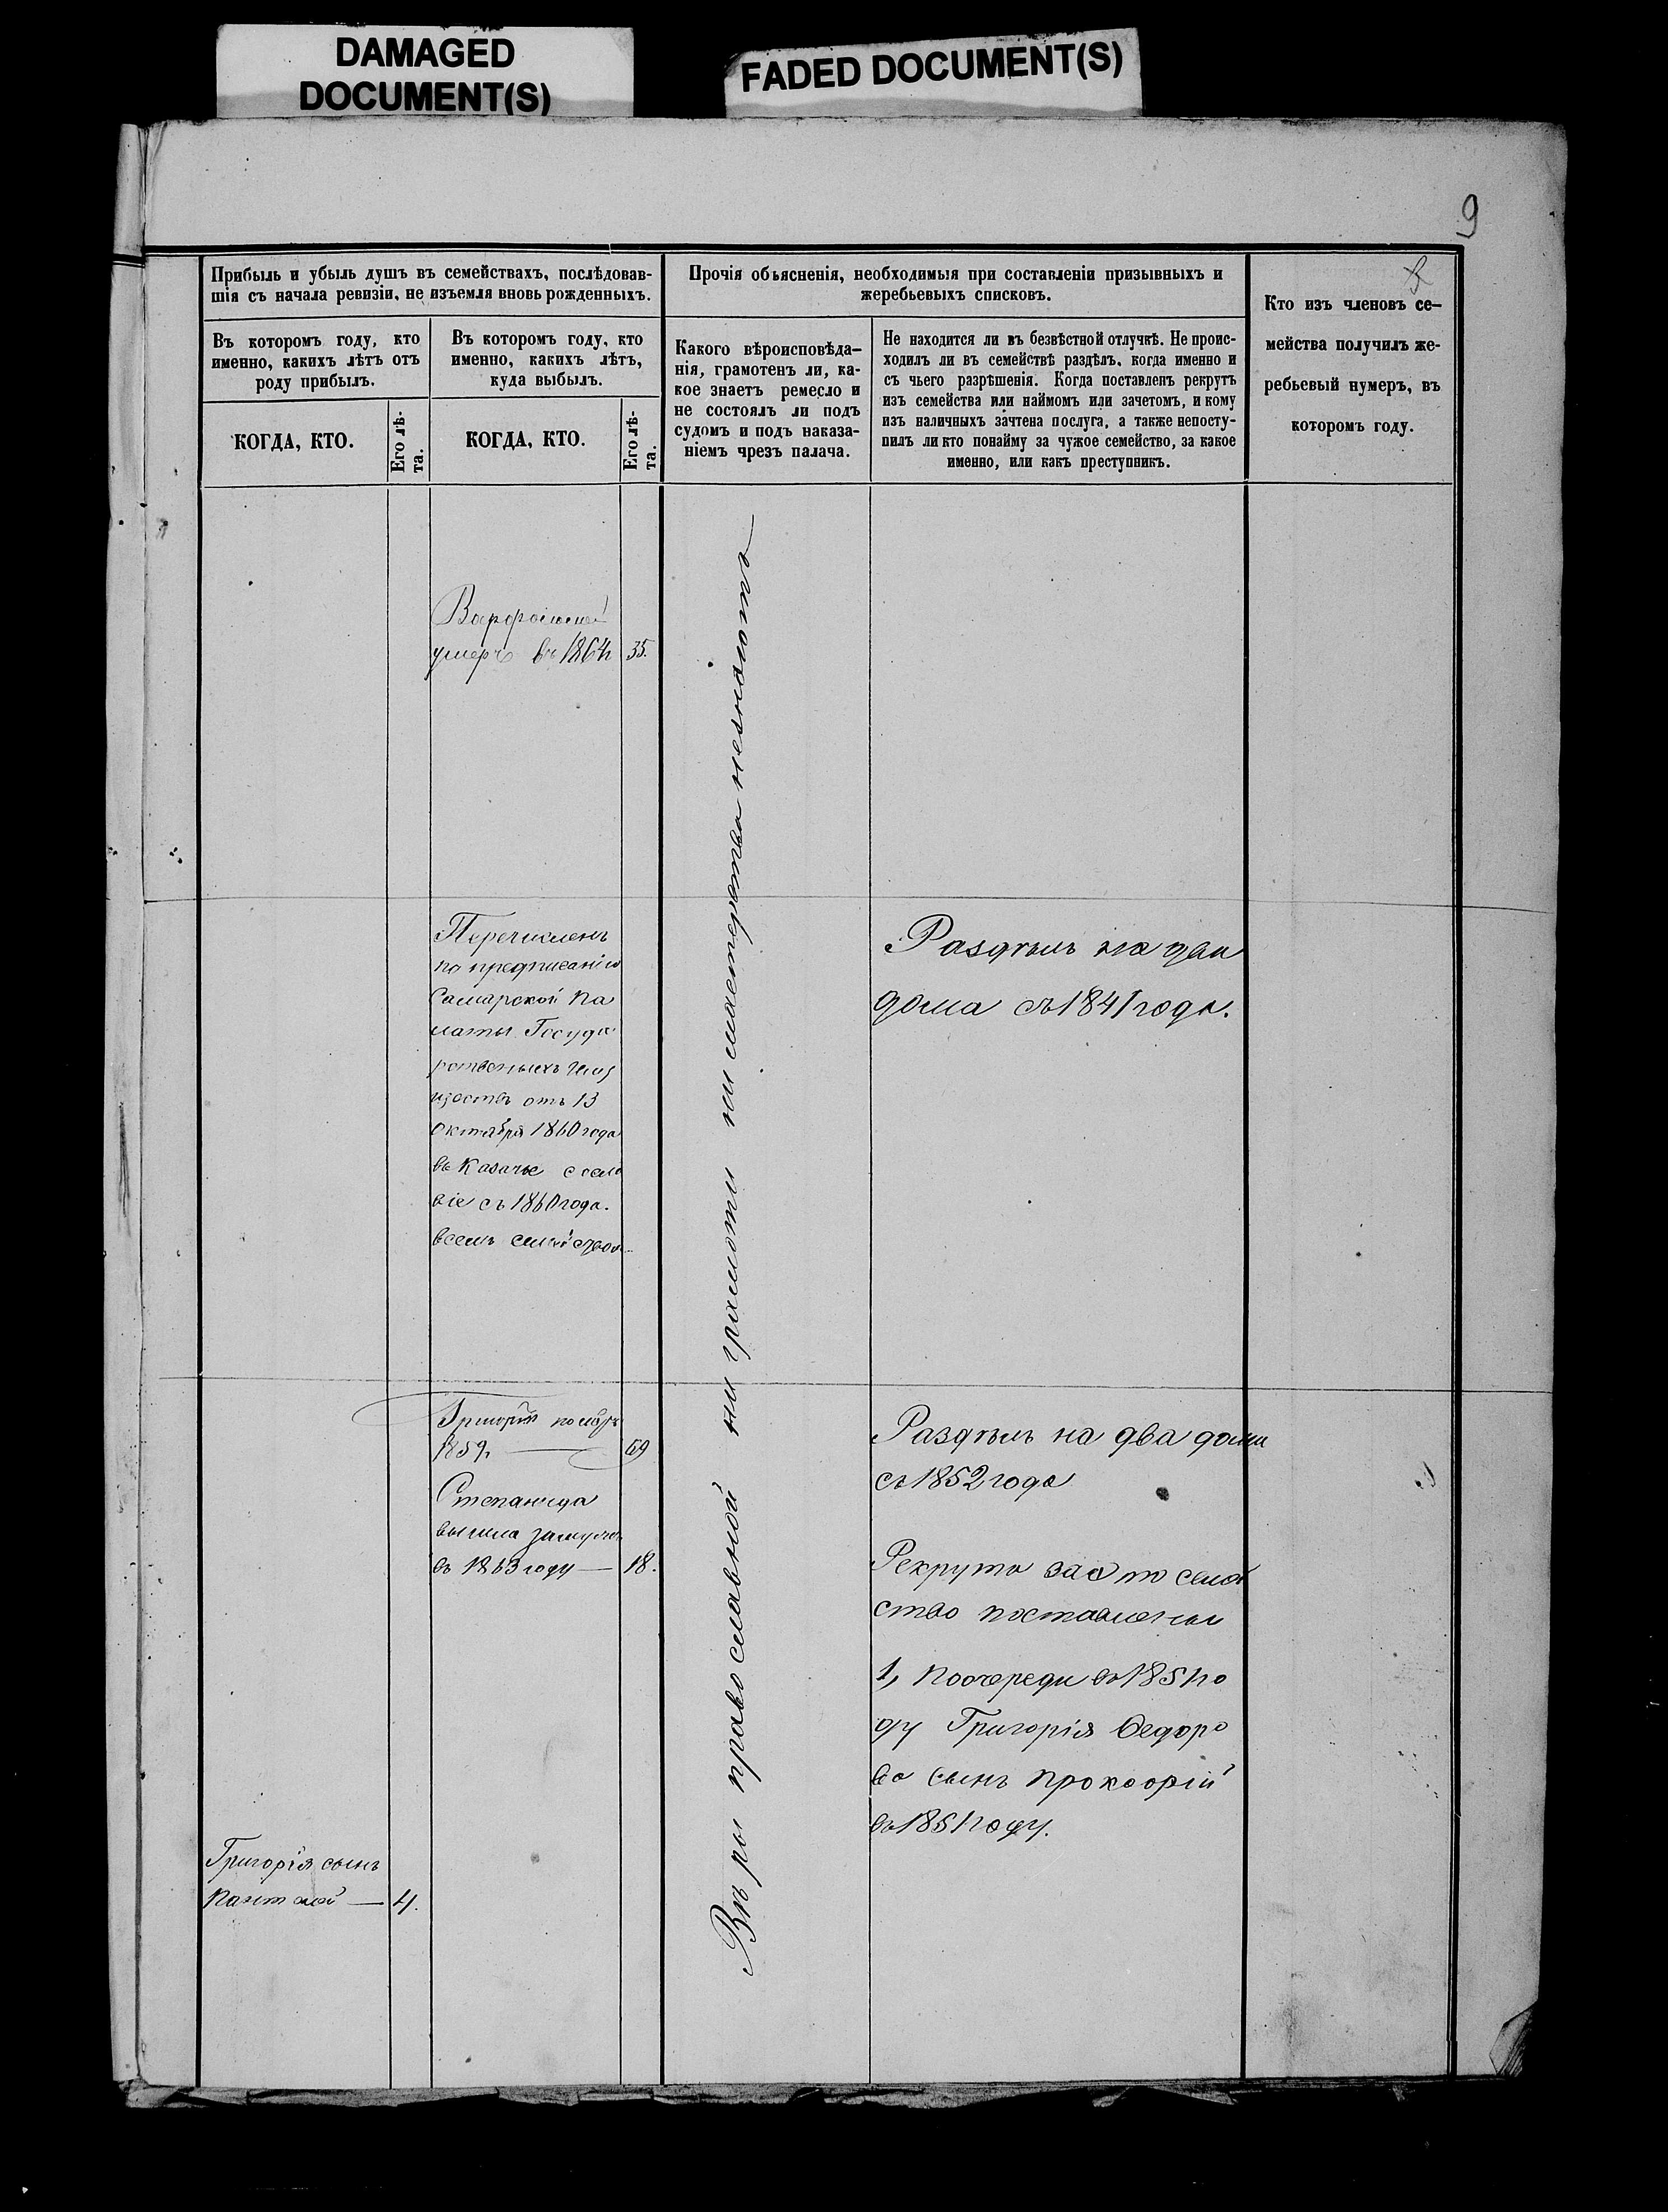 DAMAGED
DOCUMENT(S)
FADED DOCUMENT(S)
9
Прибыль и убыль душъ въ семействахъ, послѣдовав-
шія съ начала ревизіи, не изъемля вновь рожденныхъ.
Въ которомъ году, кто
именно, какихъ лѣтъ отъ
роду прибылъ.
КОГДА, КТО.
Его лѣ-
та.
Въ которомъ году, кто
именно, какихъ лѣтъ,
куда выбылъ.
КОГДА, КТО.
Его лѣ-
та.
Прочія объясненія, необходимыя при составленіи призывныхъ и
жеребьевыхъ списковъ.
Какого вѣроисповѣда-
нія, грамотенъ ли, ка-
кое знаетъ ремесло и
не состоялъ ли подъ
судомъ и подъ наказа-
ніемъ чрезъ палача.
Не находится ли въ безвѣстной отлучкѣ. Не проис-
ходилъ ли въ семействѣ раздѣлъ, когда именно и
съ чьего разрѣшенія. Когда поставленъ рекрутъ
изъ семейства или наймомъ или зачетомъ, и кому
изъ наличныхъ зачтена послуга, а также непосту-
пилъ ли кто понайму за чужое семейство, за какое
именно, или какъ преступникъ.
Кто изъ членовъ се-
мейства получилъ же-
ребьевый нумеръ, въ
которомъ году.
умеръ въ 1864 35.
Перечисленъ
по предписанію
Самарской Па
латы Госуда
рственныхъ Иму
ществъ отъ 13
Октября 1860 года
въ Казачье сосло
віе съ 1860 года.
всемъ семействомъ
Раздѣлъ на два
дома съ 1841 года.
Григорій померъ
1859 69
Степанида
вышла замужъ
въ 1863 году — 18.
Раздѣлъ на два дома
съ 1852 года
Рекрута за это семей
ство поставлены
1, поочереди въ 1851 го
ду Григорія Федоро
ва сынъ Прокофій
въ 1851 году.
Григорія сынъ
Пантелей — 4.
Вѣры православной ни грамоти ни мастерства незнаютъ